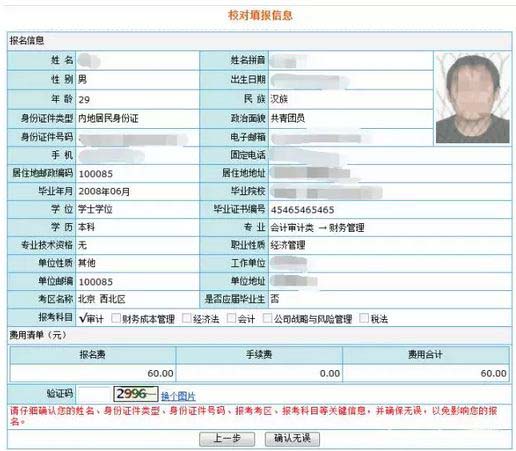 核对填报信息
报名信息
姓 名 姓名拼音
性 别 男 出生日期
年 龄 29 民 族 汉族
身份证件类型 内地居民身份证 政治面貌 共青团员
身份证件号码 电子邮箱
手 机 固定电话
居住地邮政编码 100085 居住地地址
毕业年月 2008年06月 毕业院校
学 位 学士学位 毕业证书编号 45465465465
学 历 本科 专 业 会计审计类 → 财务管理
专业技术资格 无 职业性质 经济管理
单位性质 其他 工作单位
单位邮编 100085 单位地址
考区名称 北京 西北区 是否应届毕业生 否
报考科目 √审计 财务成本管理 经济法 会计 公司战略与风险管理 税法
费用清单（元）
报名费 手续费 费用合计
60.00 0.00 60.00
验证码 2996 换个图片
请仔细确认您的姓名、身份证件类型、身份证件号码、报考考区、报考科目等关键信息，并确保无误，以免影响您的报
名。
上一步 确认无误